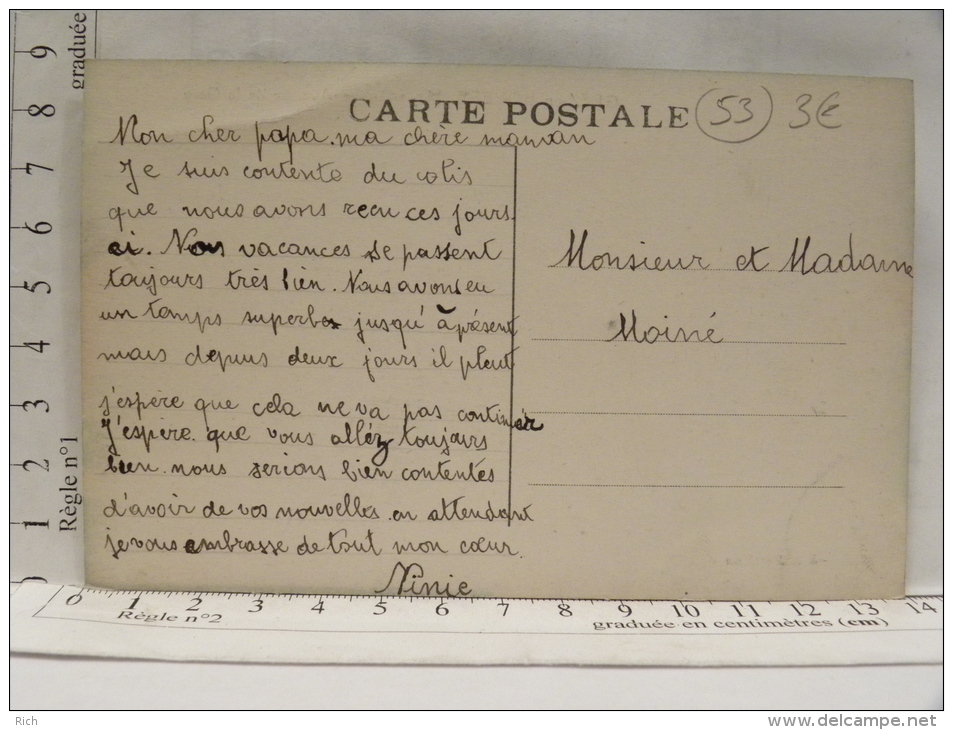 CARTE POSTALE
53 3€
Mon cher papa. ma chère maman
Je suis contente du colis
que nous avons recu ces jours
ci. Nos vacances se passent
toujours très bien. Nous avons eu
un temps superbe jusqu'à présent
mais depuis deux jours il pleut
j'espère que cela ne va pas continuer
J'espère que vous allez toujours
bien. nous serions bien contentes
d'avoir de vos nouvelles. en attendant
je vous embrasse de tout mon cœur.
Ninie
Monsieur et Madame
Moiné
9
8
7
6
5
4
3
2
1
0
graduée
Règle n°1
0 1 2 3 4 5 6 7 8 9 10 11 12 13 14
Règle n°2
graduée en centimètres (cm)
Rich
delcampe.net